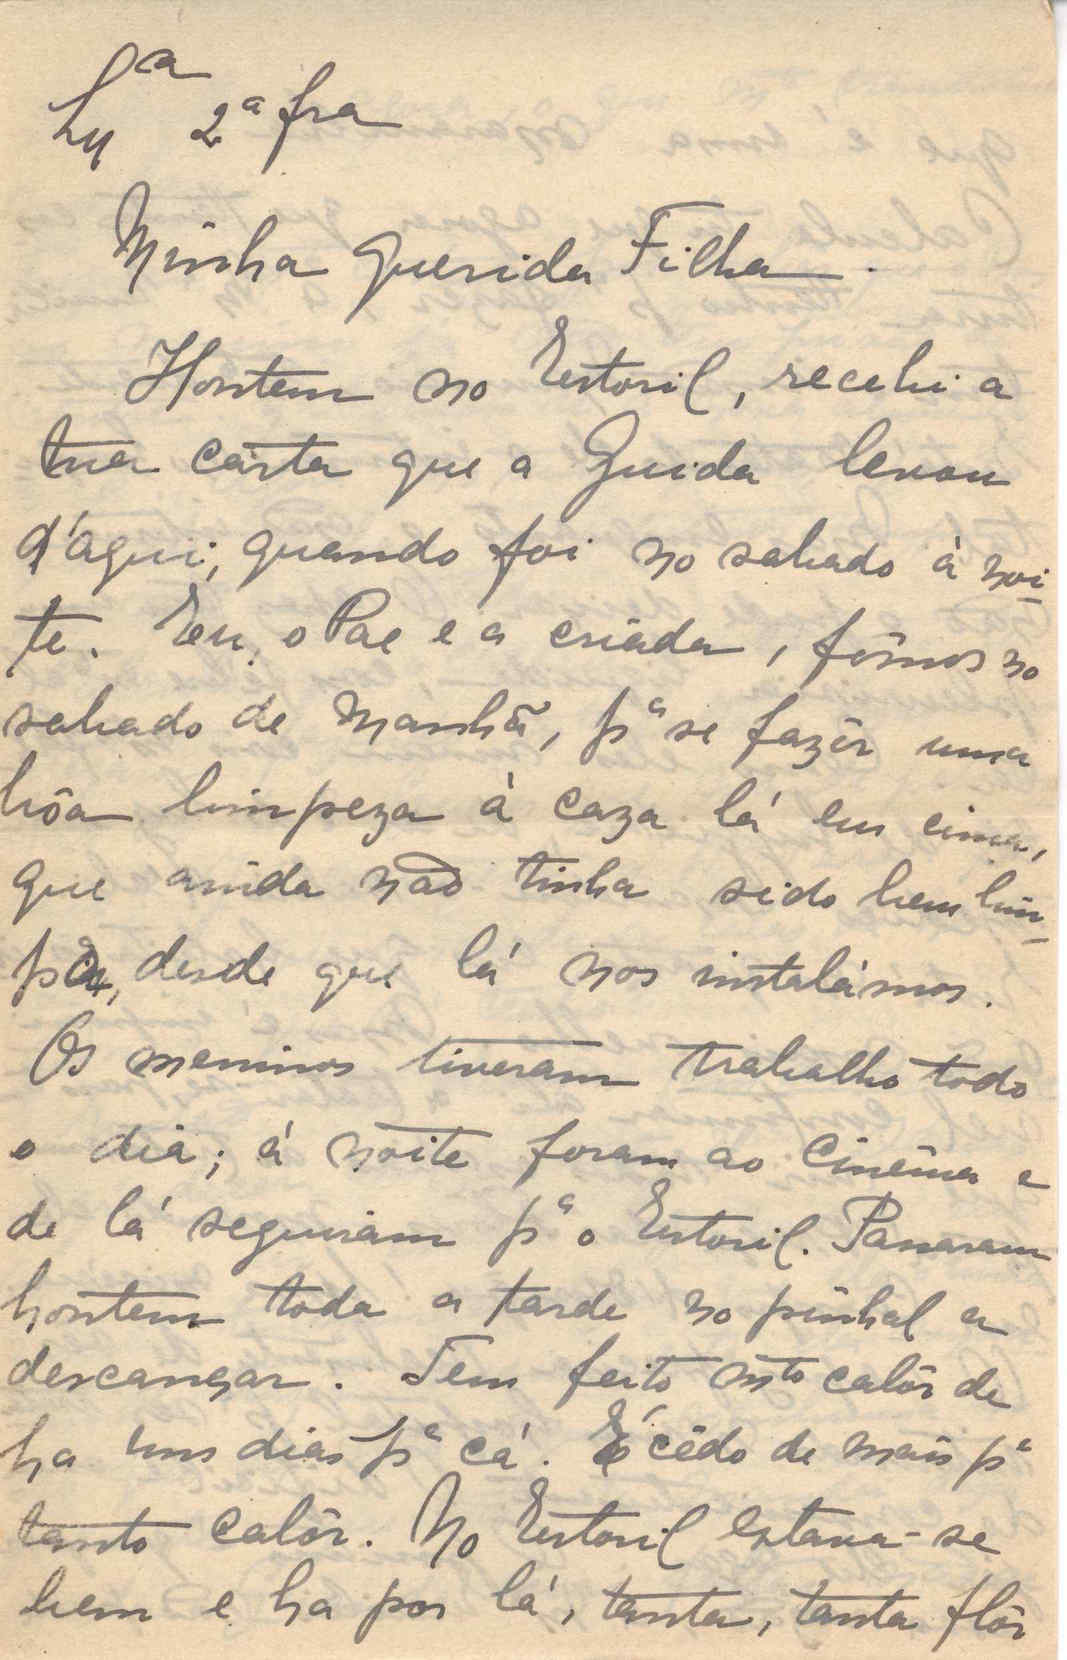 Lxª 2ª fra
Minha querida Filha.
Hontem no Estoril, recebi a
tua carta que a Guida levou
d'aqui, quando foi no sabado à noi-
te. Eu, o Pae e a criada, fômos no
sabado de manhã, pª se fazêr uma
bôa limpeza à caza lá em cima,
que ainda não tinha sido bem lim-
pa, desde que lá nos instalámos.
Os meninos tiveram trabalho todo
o dia; á noite foram ao cinêma e
de lá seguiram pª o Estoril. Passaram
hontem toda a tarde no pinhal a
descançar. Tem feito mto calôr de
ha uns dias pª cá. É cêdo de mais pª
tanto calôr. No Estoril estava-se
bem e ha por lá, tanta, tanta flôr